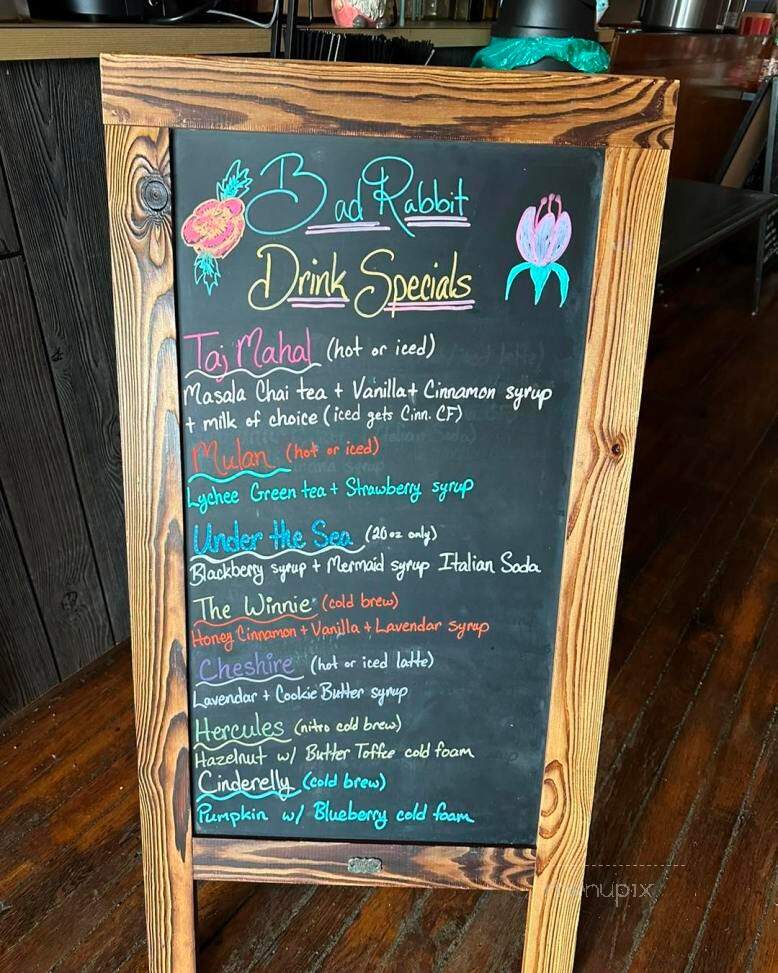 Bad Rabbit
Drink Specials
Taj Mahal (hot or iced)
Masala Chai tea + Vanilla + Cinnamon syrup
+ milk of choice (iced gets Cinn. CF)
Mulan (hot or iced)
Lychee Green tea + Strawberry syrup
Under the Sea (20oz only)
Blackberry syrup + Mermaid syrup Italian Soda
The Winnie (cold brew)
Honey Cinnamon + Vanilla + Lavendar syrup
Cheshire (hot or iced latte)
Lavendar + Cookie Butter syrup
Hercules (nitro cold brew)
Hazelnut w/ Butter Toffee cold foam
Cinderelly (cold brew)
Pumpkin w/ Blueberry cold foam
menupix